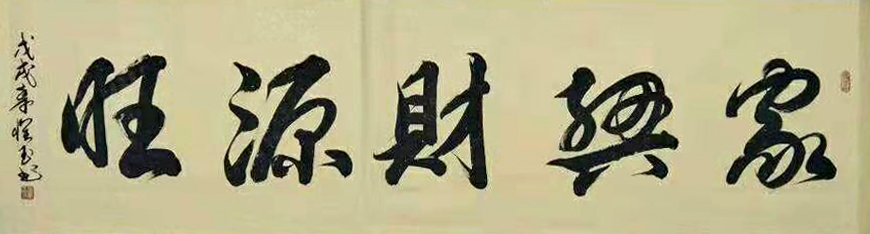 家興財源旺
戊戌年